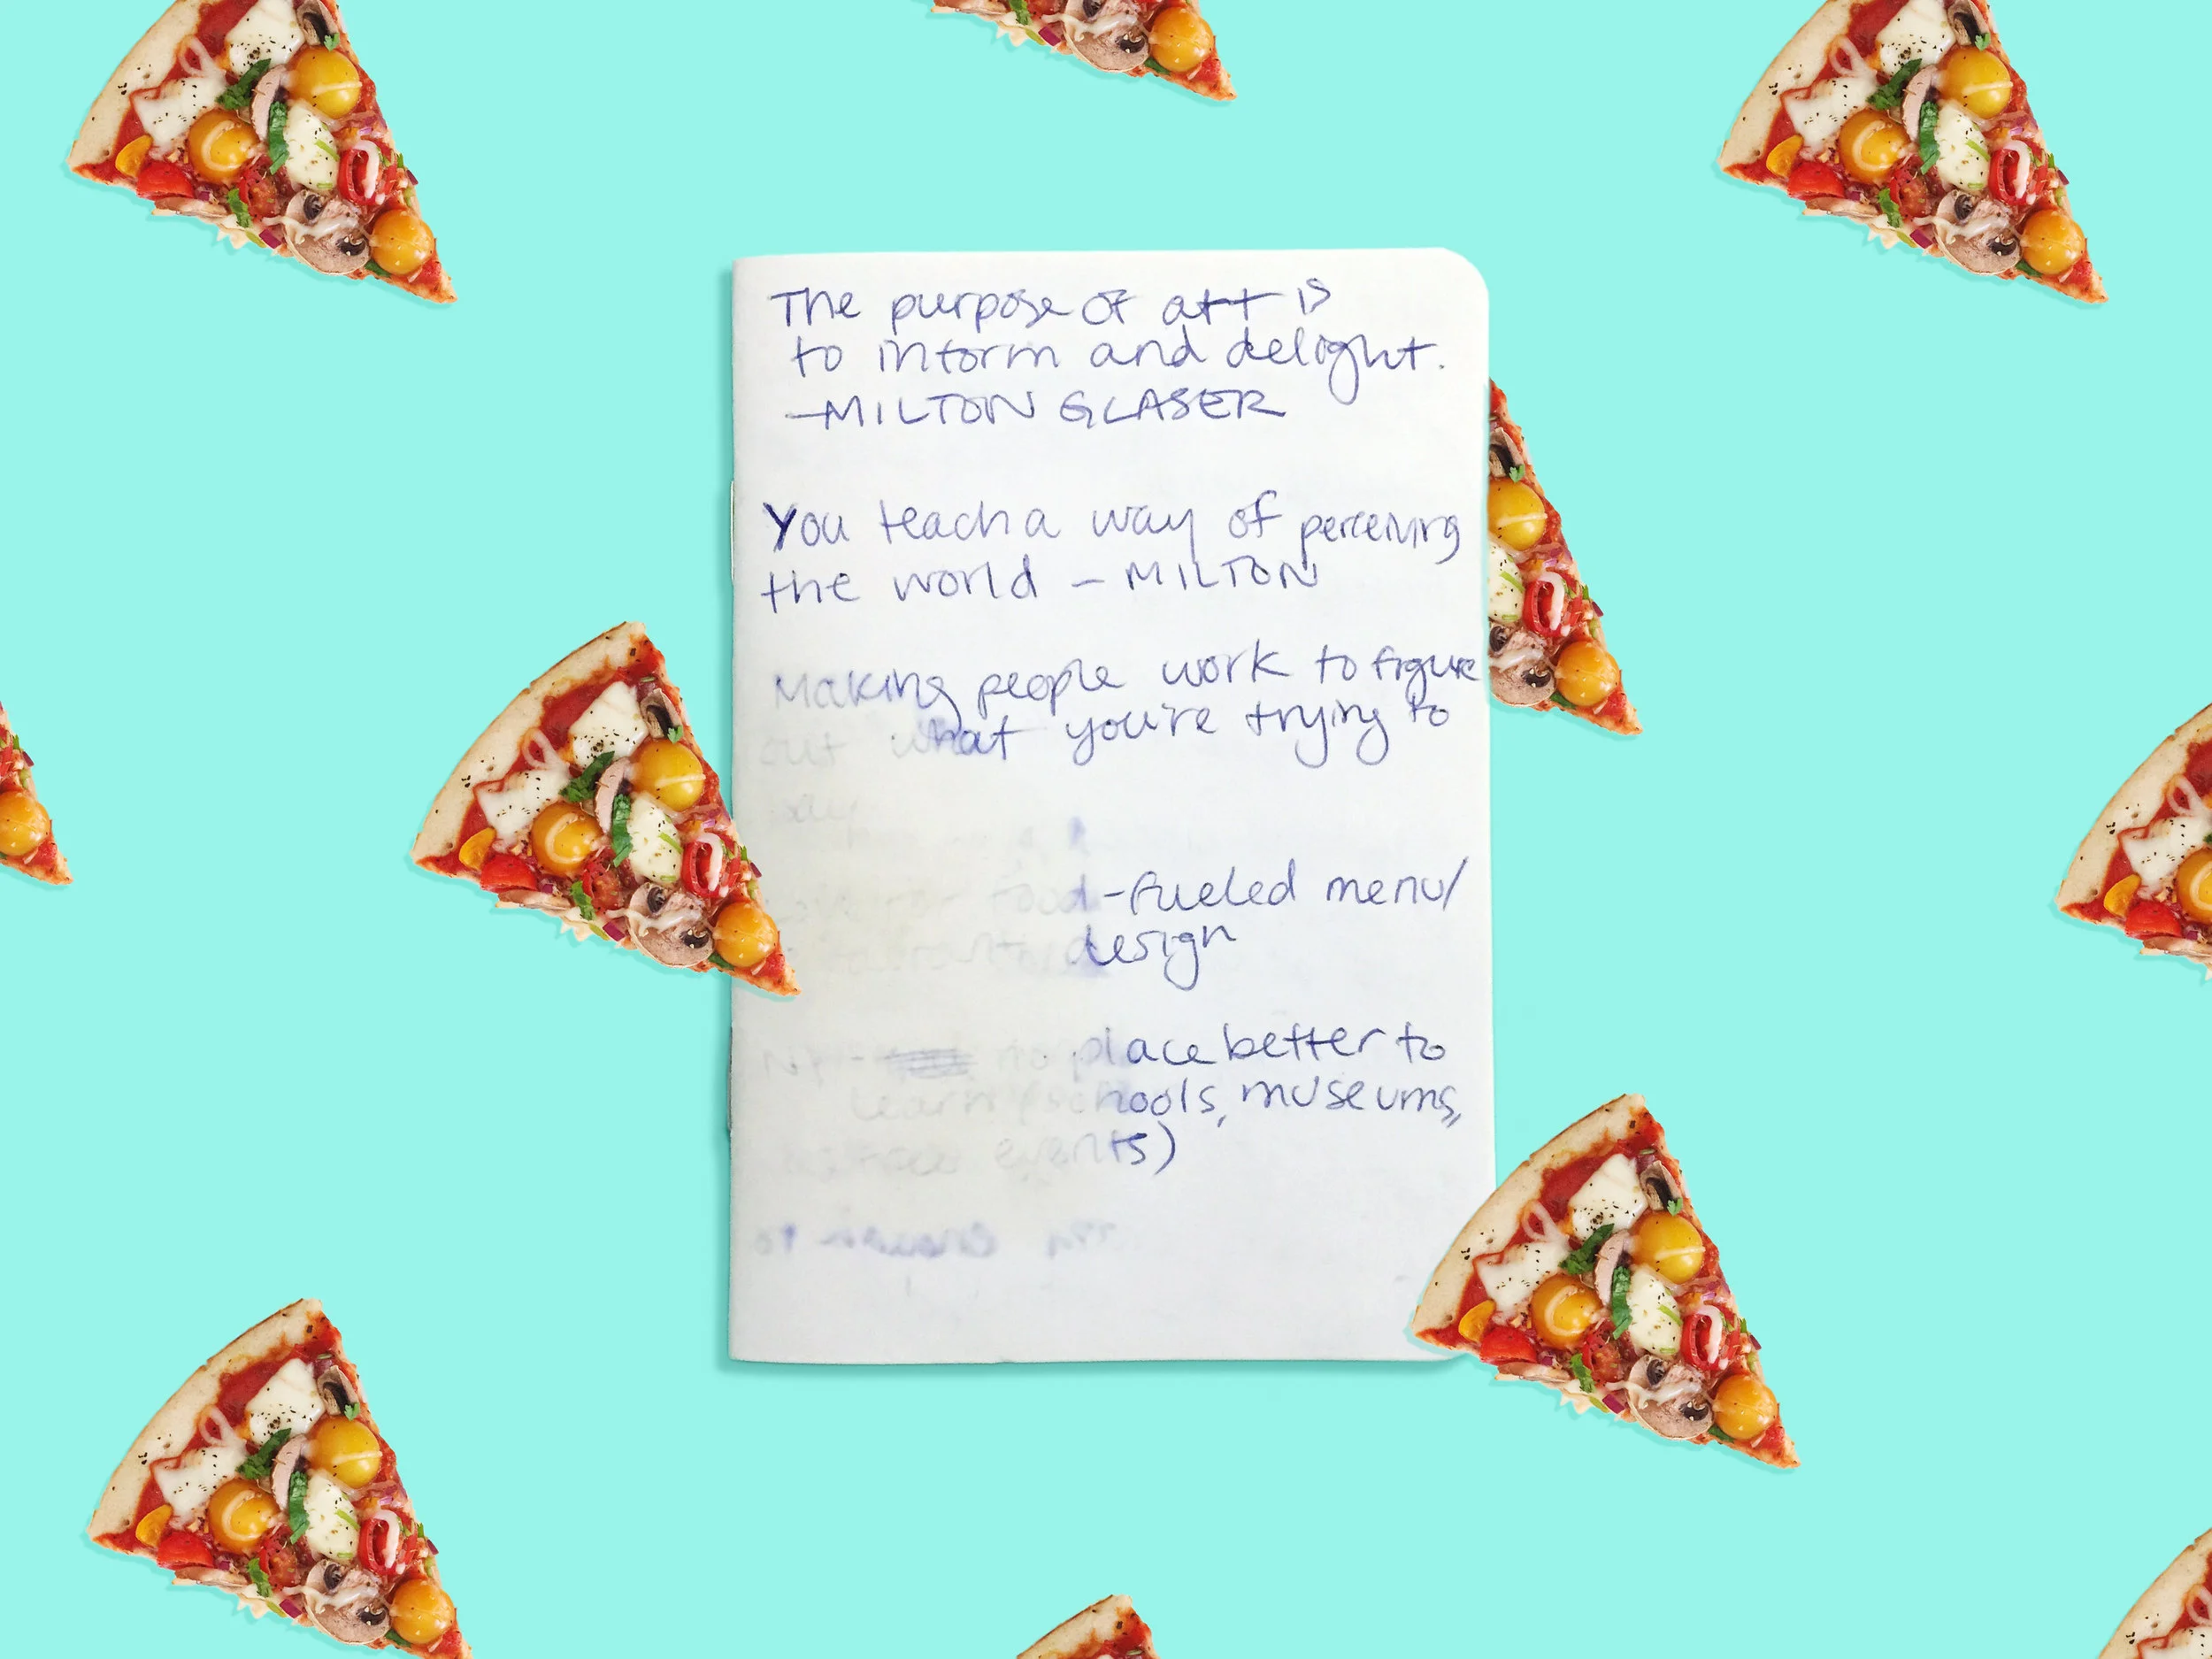 The purpose of art is
to inform and delight.
—MILTON GLASER
You teach a way of perceiving
the world – MILTON
Making people work to figure
out what you're trying to
say
food-fueled menu/
design
no place better to
learn (schools, museums,
events)